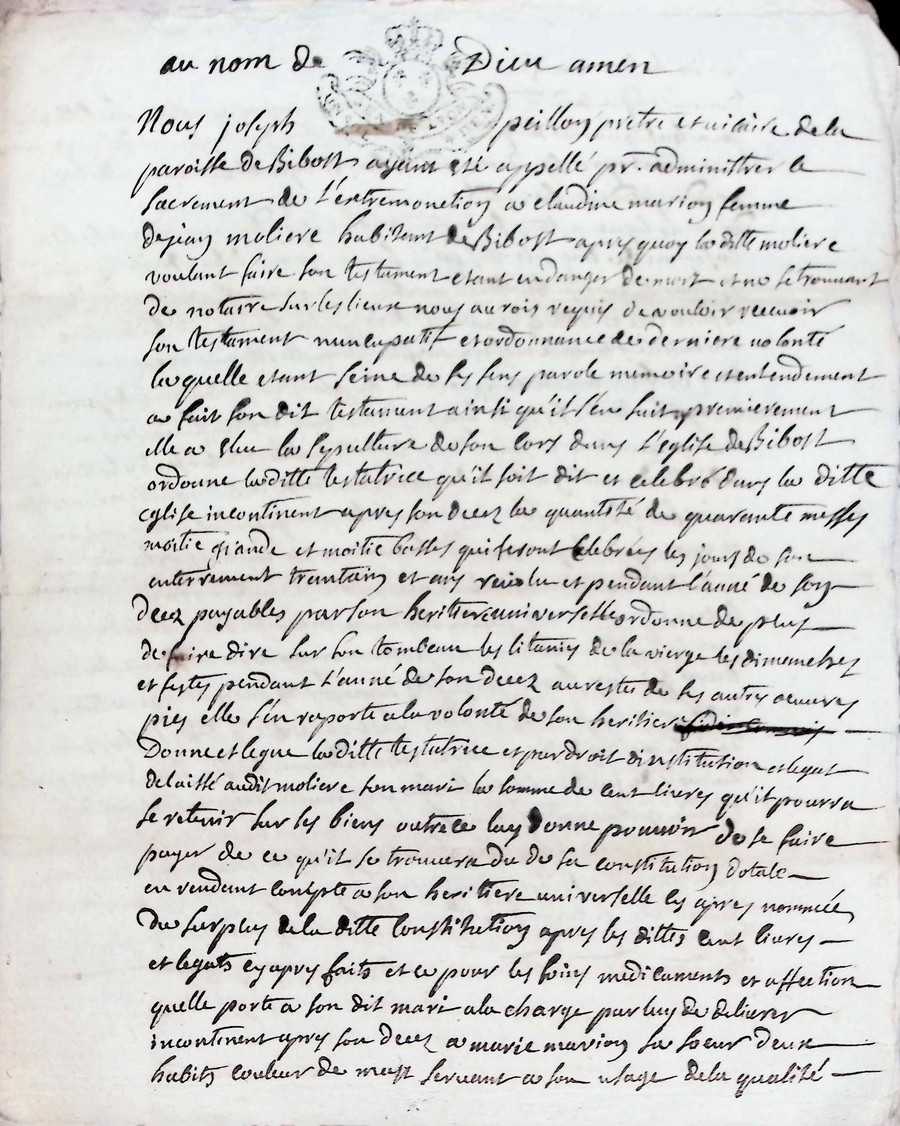 au nom de Dieu amen
Nous joseph peillon pretre et vicaire de la
paroisse de Bibost ayant été appellé pr. administrer le
sacrement de l'extremonction a claudine marion femme
de jean moliere habitant de Bibost apres quoy la ditte moliere
voulant faire son testament etant en danger de mort et ne se trouvant
de notaire sur les lieux nous auroit requis de vouloir recevoir
son testament nuncupatif et ordonnance de derniere volonté
la quelle etant seine de ses sens parole memoire et entendement
a fait son dit testament ainsi qu'il s'en suit premierement
elle a elu la sepulture de son cors dans l'eglise de Bibost
ordonne la ditte testatrice qu'il soit dit et celebré dans la ditte
eglise incontinent apres son decez la quantité de quarante messes
moitie grande et moitie basses qui seront celebrées les jours de son
enterrement trantain et an revolu et pendant l'anné de son
decez payables par son heritiere universelle ordonne de plus
de faire dire sur son tombeau les litanies de la vierge les dimenches
et festes pendant l'anné de son decez au reste de ses autres oeuvres
pies elle s'en raporte a la volonté de son heritiere
Donne et legue la ditte testatrice et par droit d'institution et legat
delaissé audit moliere son mari la somme de cent livres qu'il pourra
se retenir sur ses biens outre ce luy donne pouvoir de se faire
payer de ce qu'il se trouvera du de sa constitution dotale
en rendant compte a son heritiere universelle cy apres nommée
du surplus de la ditte constitution apres les dittes cent livres
et legats cy apres faits et ce pour les soins medicaments et affection
quelle porte a son dit mari a la charge par luy de delivrer
incontinent apres son decez a marie marion sa soeur deux
habits couleur de servant a son usage de la qualité